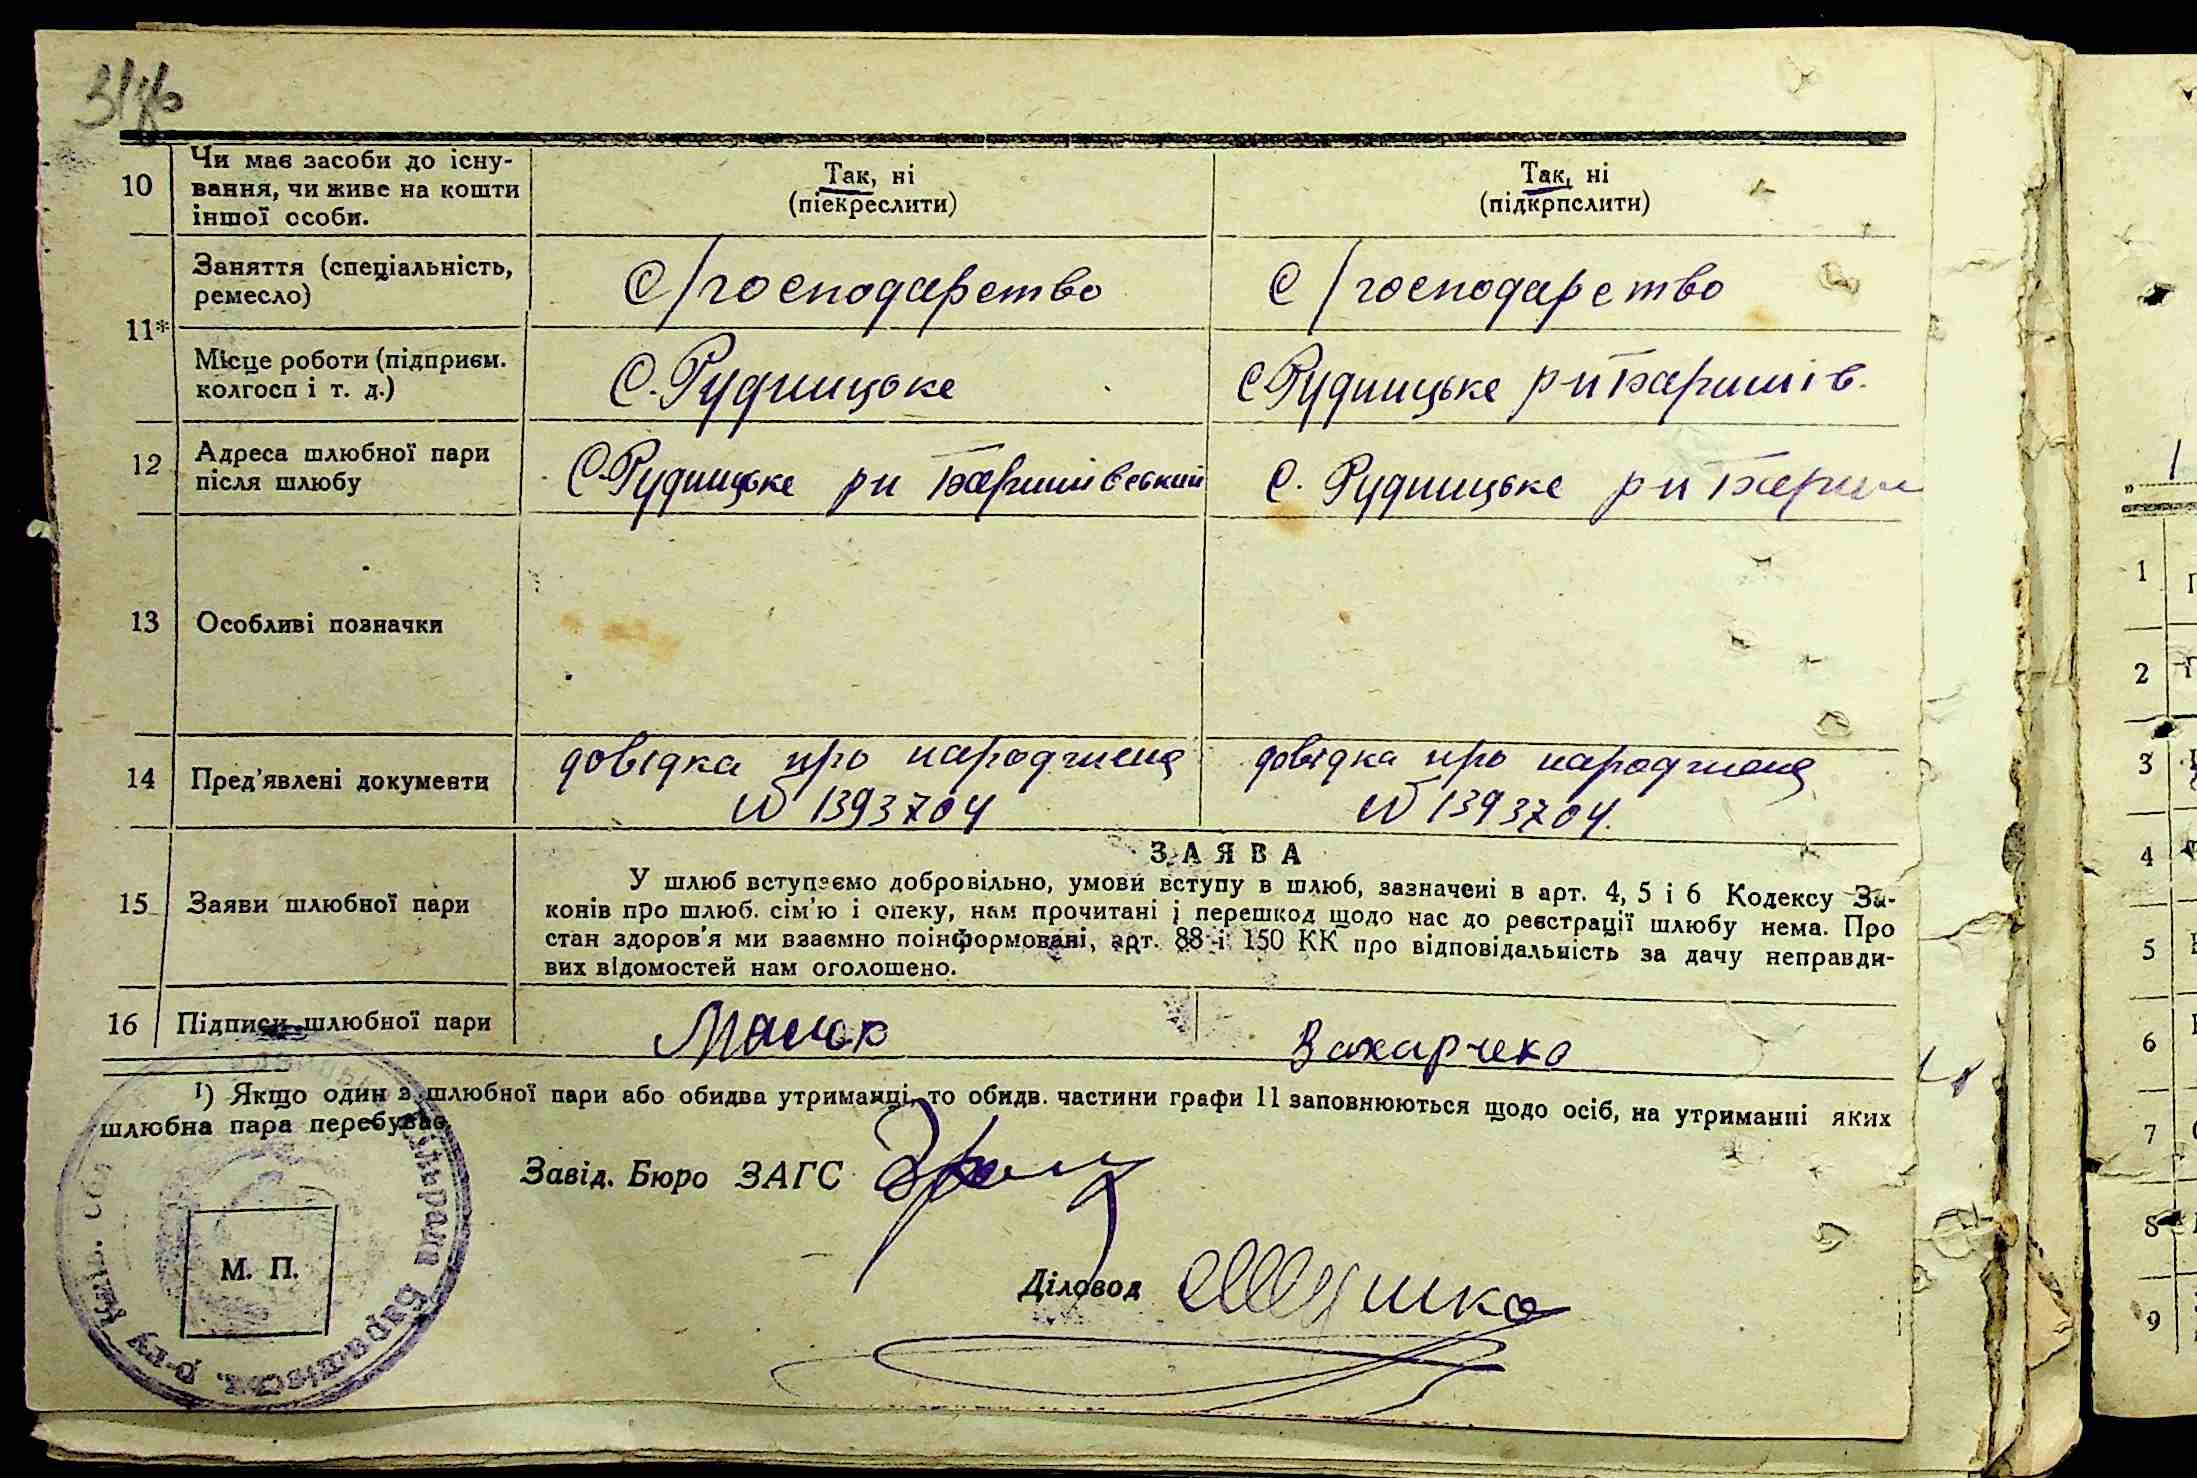 10 Чи має засоби до існу-
вання, чи живе на кошти
іншої особи.
Так, ні
(піекреслити)
Так, ні
(підкрпслити)
11*
Заняття (спеціальність,
ремесло)
С/господарство
С/господарство
Місце роботи (підприєм.
колгосп і т. д.)
С. Рудницьке
С Рудницьке р-н Баришів.
12 Адреса шлюбної пари
після шлюбу
С. Рудницьке рн Баришівський
С. Рудницьке р-н Бариш
13 Особливі позначки
14 Пред'явлені документи
довідка про народження
№ 1393704
довідка про народження
№ 1393704.
15 Заяви шлюбної пари
ЗАЯВА
У шлюб вступаємо добровільно, умови вступу в шлюб, зазначені в арт. 4, 5 і 6 Кодексу За-
конів про шлюб. сім'ю і опеку, нам прочитані і перешкод щодо нас до реєстрації шлюбу нема. Про
стан здоров'я ми взаємно поінформовані, арт. 88 і 150 КК про відповідальність за дачу неправди-
вих відомостей нам оголошено.
16 Підписи шлюбної пари
Малюк
Захарчеко
¹) Якщо один з шлюбної пари або обидва утриманці, то обидв. частини графи 11 заповнюються щодо осіб, на утриманні яких
шлюбна пара перебуває.
Завід. Бюро ЗАГС
М. П.
Діловод
1
1
2
3
4
5
6
7
8
9